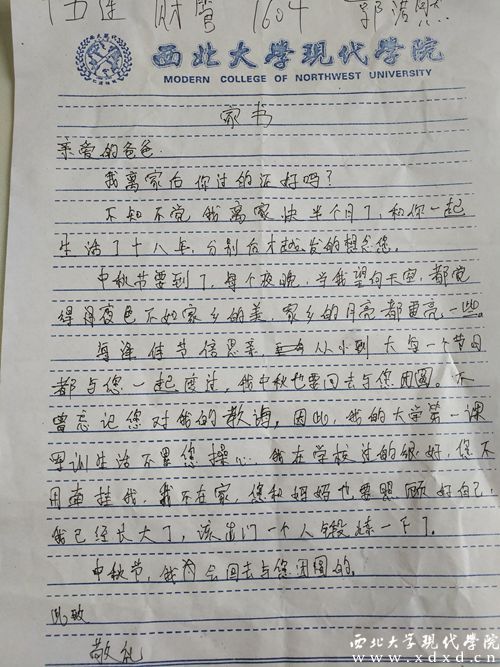 伍连 财管 1604 郭浩然
西北大學現代學院
MODERN COLLEGE OF NORTHWEST UNIVERSITY
家书
亲爱的爸爸
我离家后你过的还好吗？
不知不觉我离家快半个月了，和你一起
生活了十八年，分别后才越发的想念您。
中秋节要到了，每个夜晚，当我望向天空，都觉
得月夜色不如家乡的美，家乡的月亮都要亮一些。
每逢佳节倍思亲，从小到大每一个节日
都与您一起度过，我中秋也要回去与您团圆。不
曾忘记您对我的教诲，因此，我的大学第一课
军训生活不累您操心，我在学校过的很好，您不
用牵挂我，我不在家，您和妈妈也要照顾好自己，
我已经长大了，该出门一个人锻练一下了。
中秋节，我会回去与您团圆的。
此致
敬礼
西北大学现代学院
www.xdxd.cn